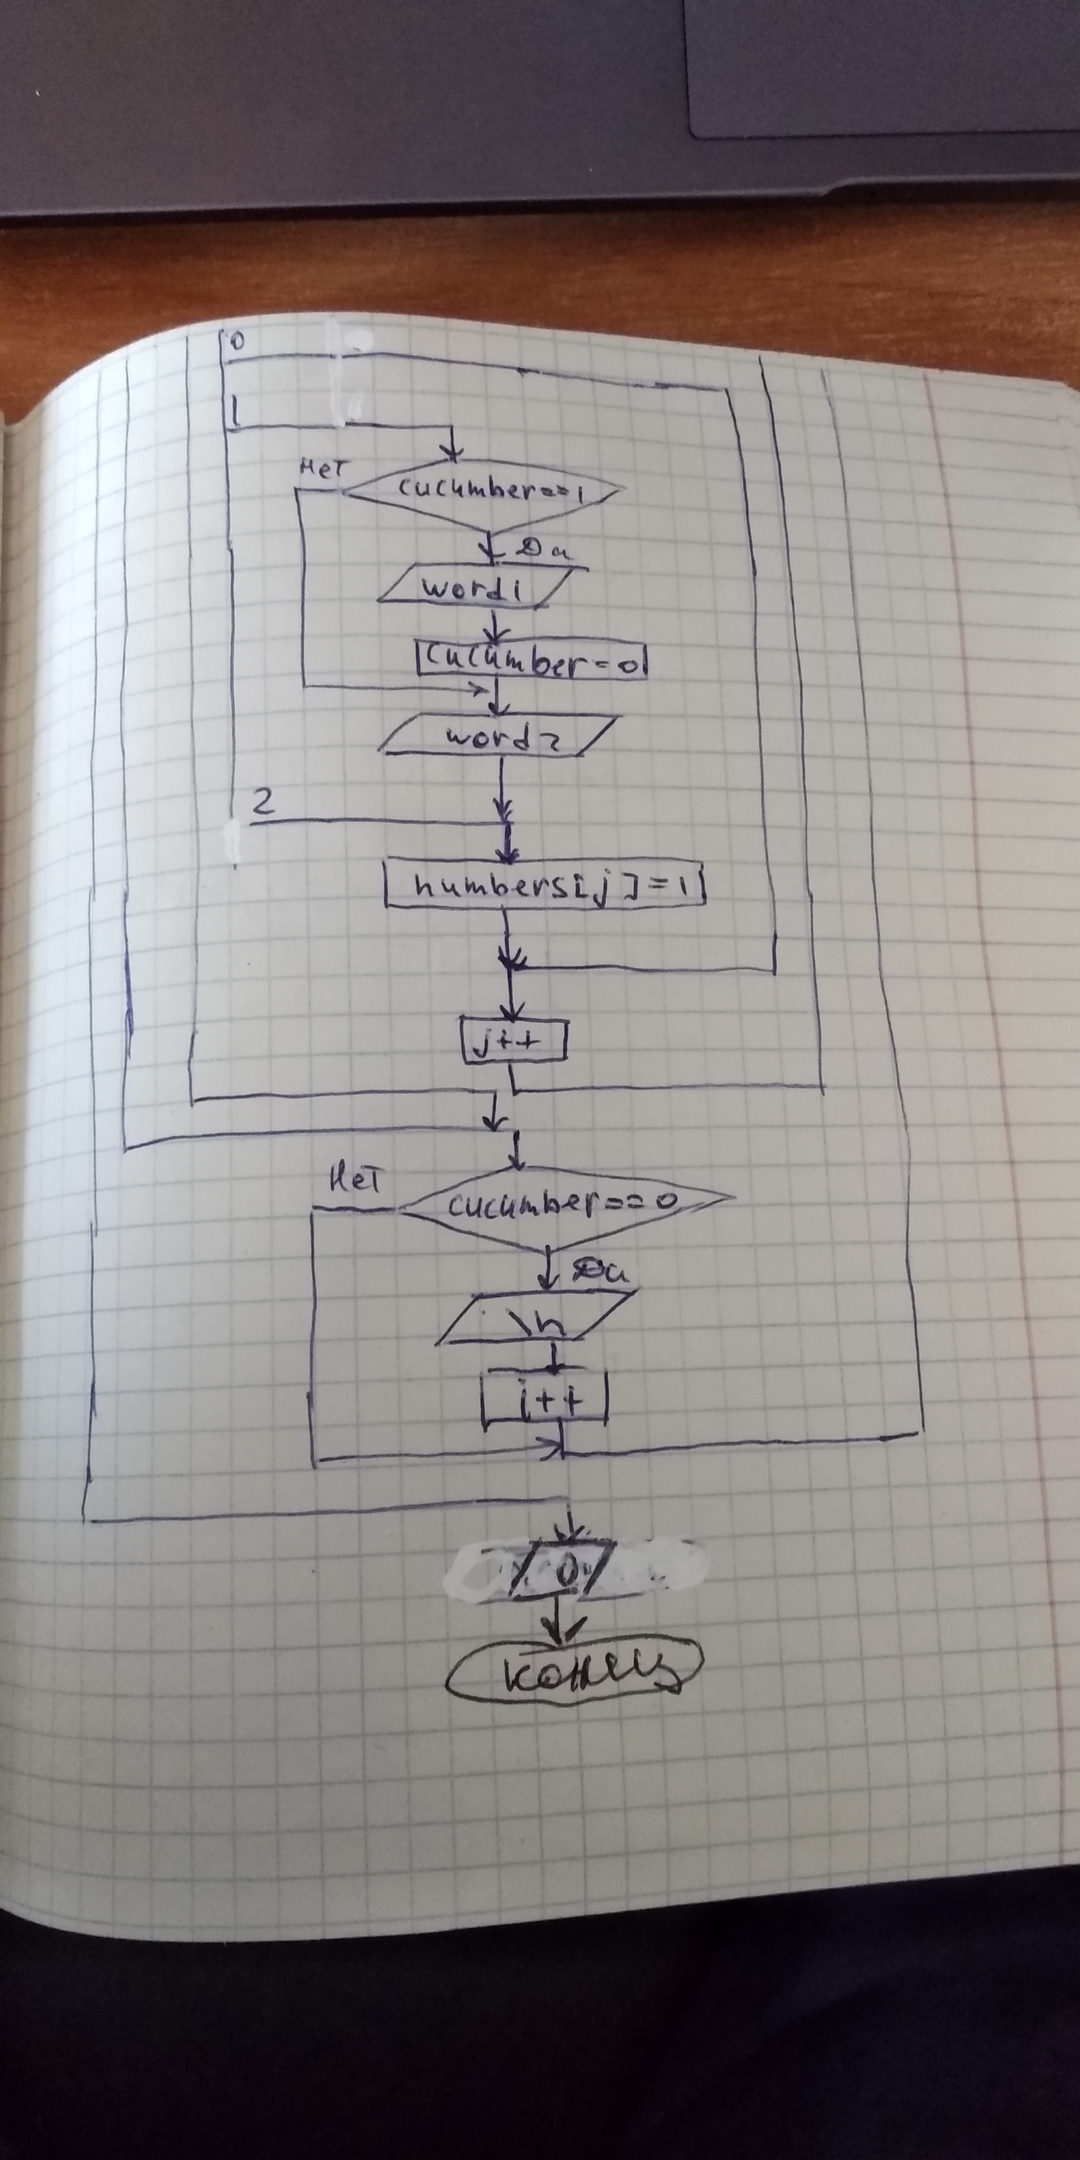 0
1
Нет
cucumber==1
Да
word1
cucumber=0
word2
2
numbers[j]=1
j++
Нет
cucumber==0
Да
\n
i++
0
конец